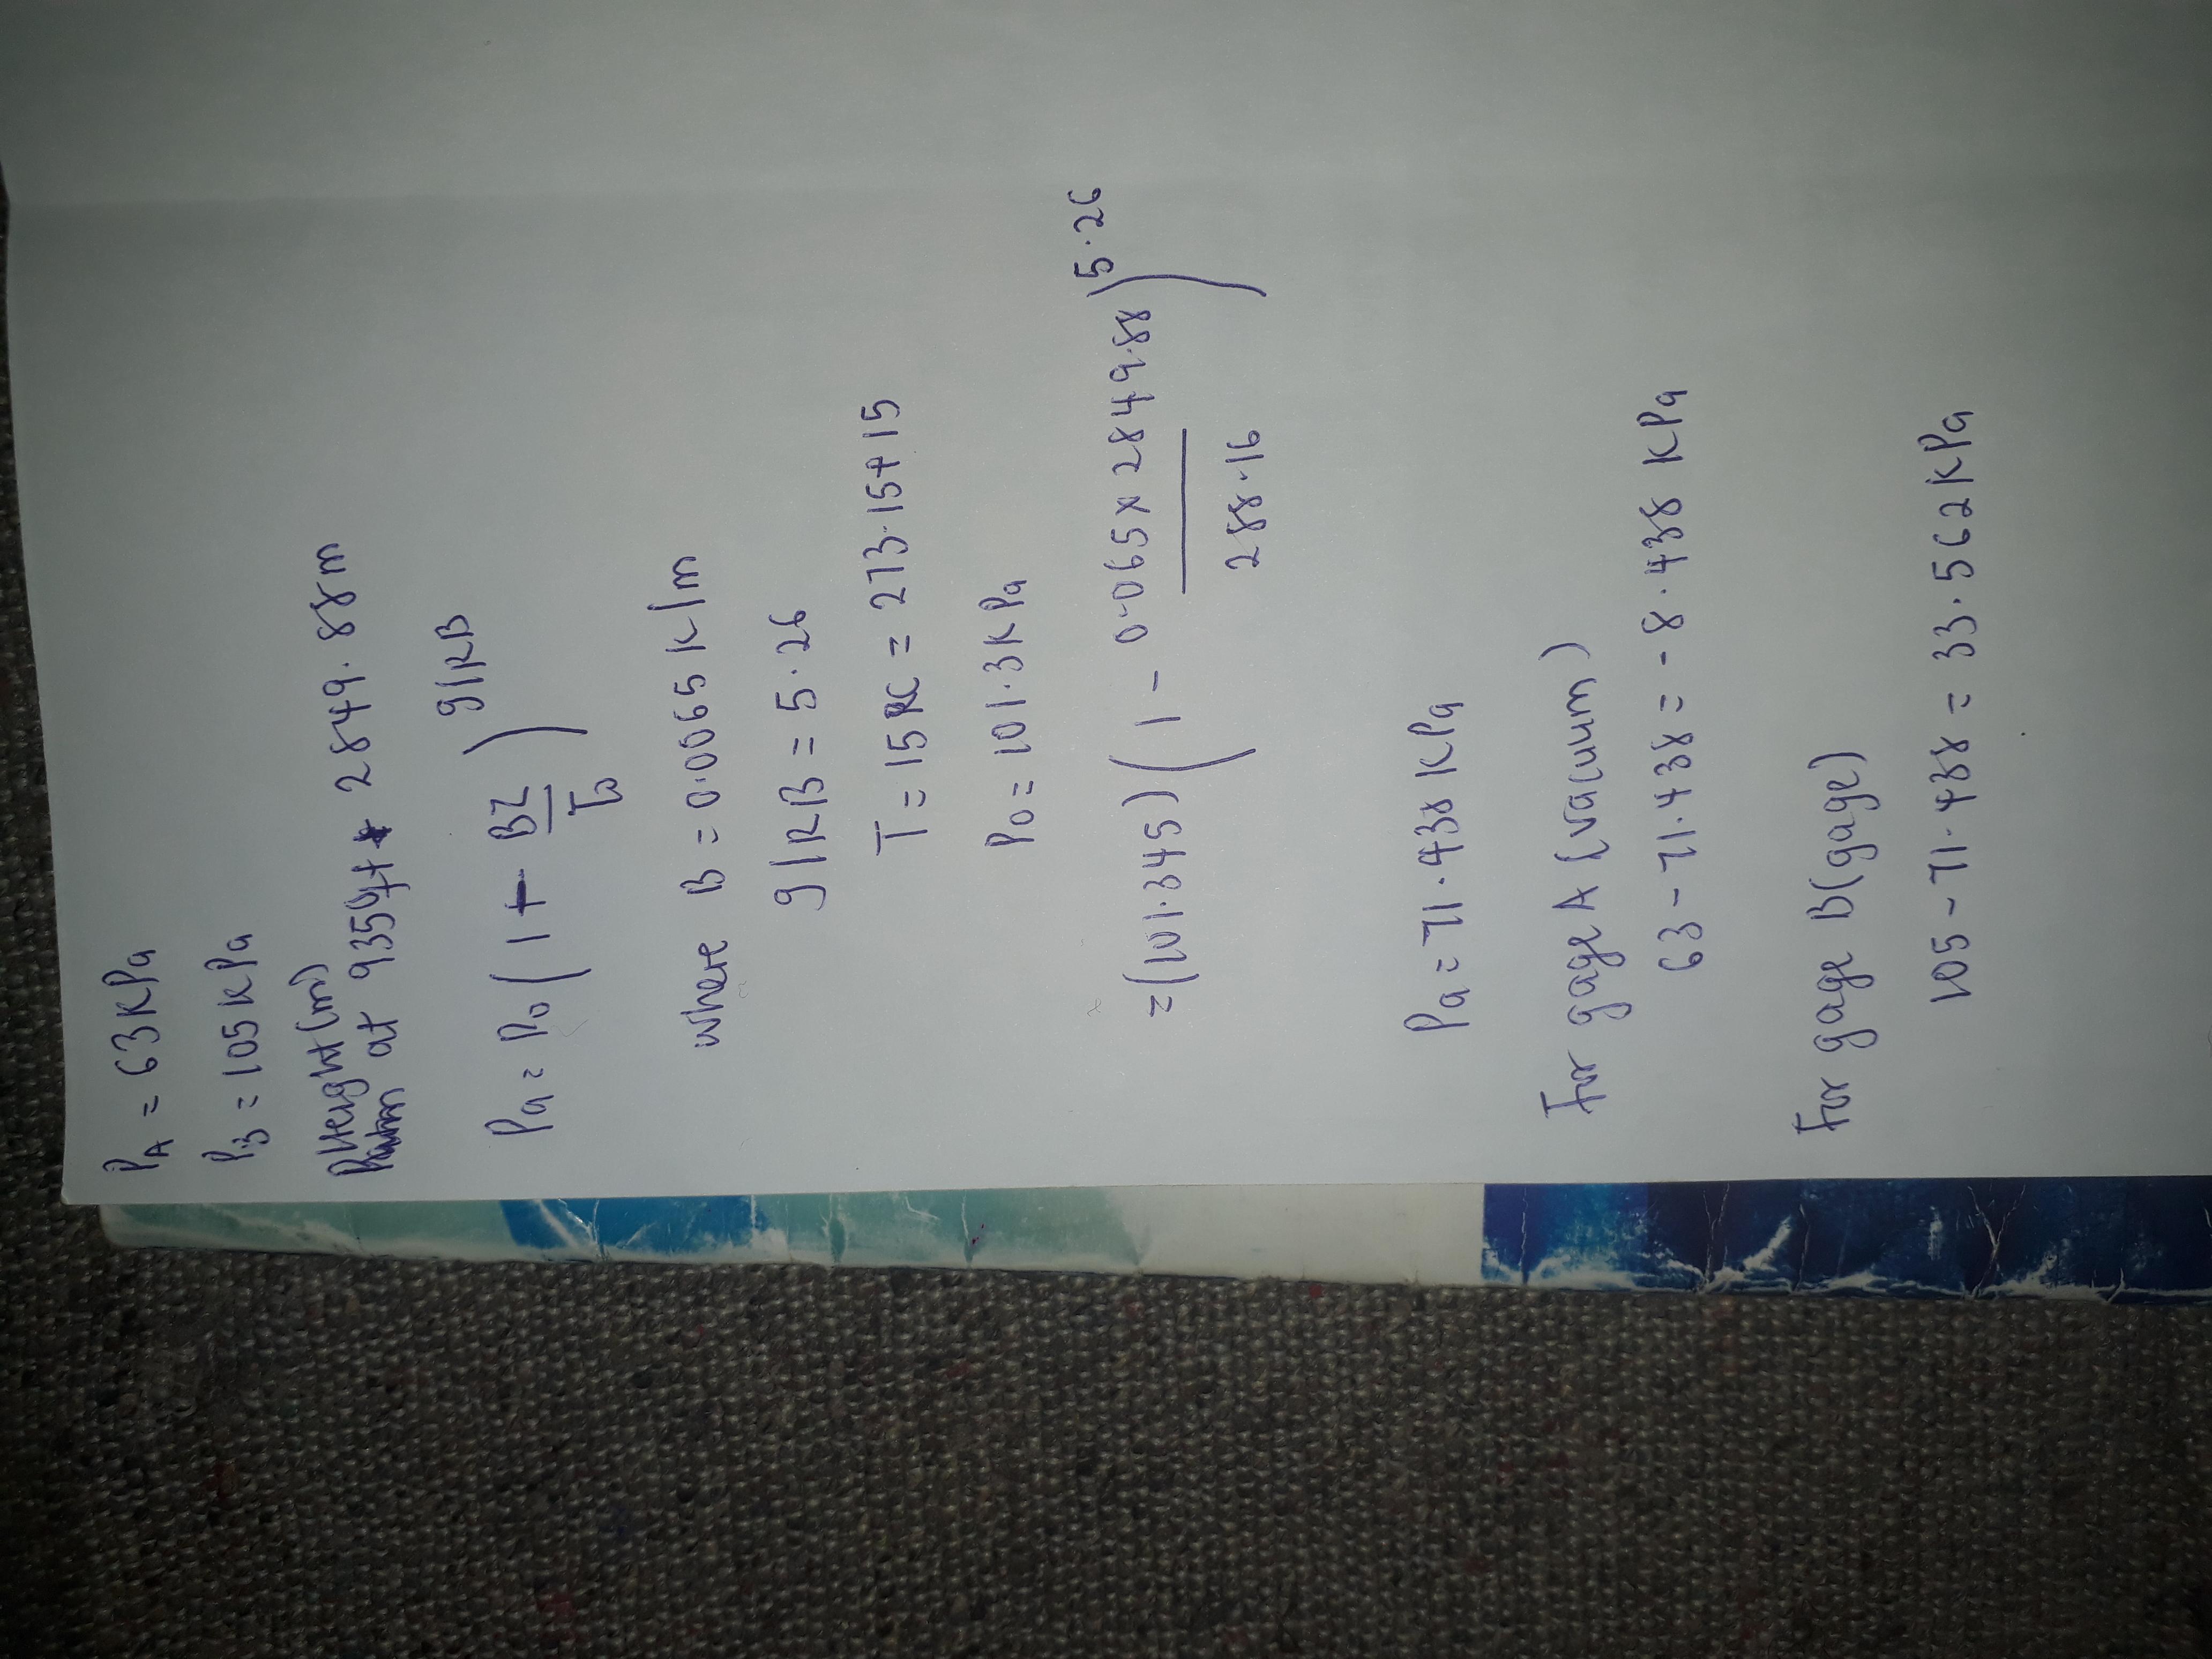 PA = 63KPa
PB = 105KPa
Height(m)
at 9359ft 2849.88m
Pa = P0 ( 1 + BZ/To ) g/RB
where B = 0.0065 K/m
g/RB = 5.26
T = 15 C = 273.15+15
P0 = 101.3KPa
=(101.345) ( 1 - 0.065 x 2849.88 / 288.16 ) 5.26
Pa = 71.438 KPa
For gage A (vacuum)
63 - 71.438 = -8.438 KPa
For gage B(gage)
105 - 71.438 = 33.562KPa